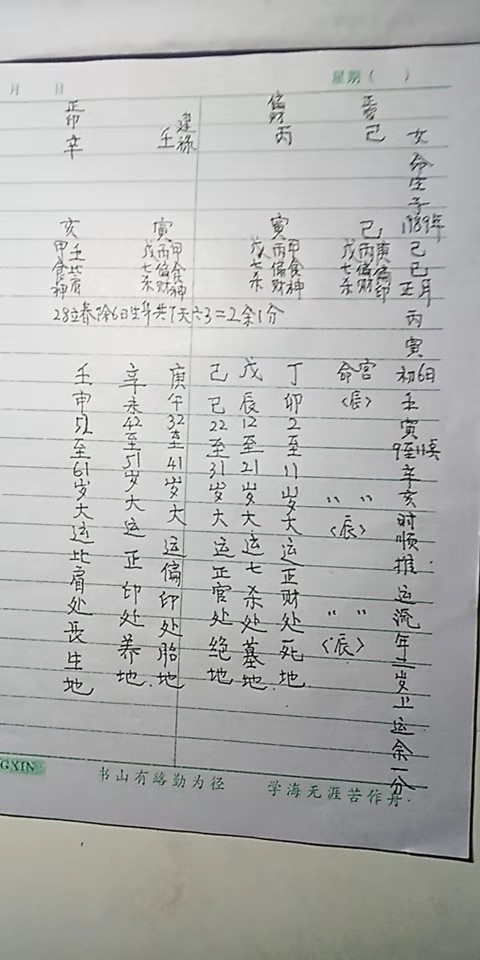 月 日 星期( )
女命生于1989年己巳正年丙寅初6日壬寅9至11点辛亥时顺推运流年二岁上运余一分
正官 己 己
庚偏印
丙偏财
戊七杀
偏财 丙 寅
甲食神
丙偏财
戊七杀
建禄 壬 寅
甲食神
丙偏财
戊七杀
正印 辛 亥
壬比肩
甲食神
28立春除6日生年共7天六3=2余1分
命宫〈辰〉
〃 〃〈辰〉
〃 〃〈辰〉
丁卯2至11岁大运正财处死地
戊辰12至21岁大运七杀处墓地
己巳22至31岁大运正官处绝地
庚午32至41岁大运偏印处胎地
辛未42至51岁大运正印处养地
壬申52至61岁大运比肩处长生地
GXIN 书山有路勤为径 学海无涯苦作舟